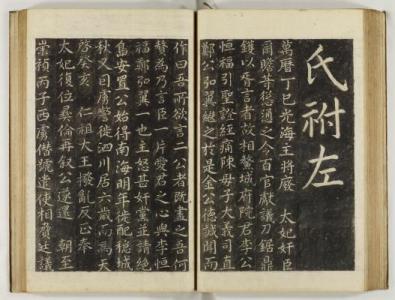 氏祔左
萬曆丁巳光海主將廢　太妃奸臣
爾瞻等慫通之令百官獻議刀鋸鼎
鑊以斥言者故相鰲城府院君李公
恒福引聖證經痛陳母子大義司直
鄭公弘翼繼之於是金公德諴聞而
作曰吾所欲言二公者旣盡之吾何
贅爲乃言臣一片愛君之心與李恒
福鄭弘翼一也主怒甚奸黨並請絶
島安置公始得南海明年徙配穩城
秋又曰虜警徙泗川居六歲而爲天
啓癸亥　仁祖大王撥亂反正奉
太妃復位彝倫再叙公遂還　朝至
崇禎丙子西虜僭號遣使相賡廷議